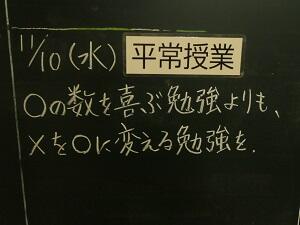 11/10(水) 平常授業
○の数を喜ぶ勉強よりも、
×を○に変える勉強を.